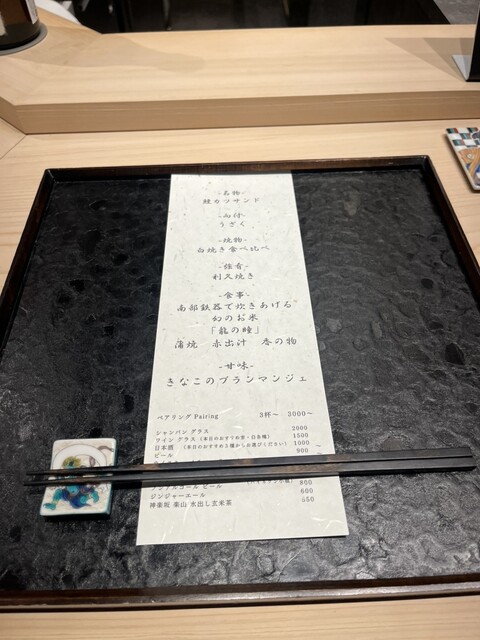 -名物-
鰻カツサンド
-向付-
うざく
-焼物-
白焼き食べ比べ
-強肴-
利久焼き
-食事-
南部鉄器で炊きあげる
幻のお米
「龍の瞳」
蒲焼　赤出汁　香の物
-甘味-
きなこのブランマンジェ
ペアリング Pairing　3杯～　3000～
シャンパン グラス　2000
ワイン グラス（本日のおすすめ赤・白各種）　1500
日本酒　（本日のおすすめ3種からお選びください）　1000
ビール　900
ノンアルコール ビール　800
ジンジャーエール　600
神楽坂 楽山 水出し玄米茶　550